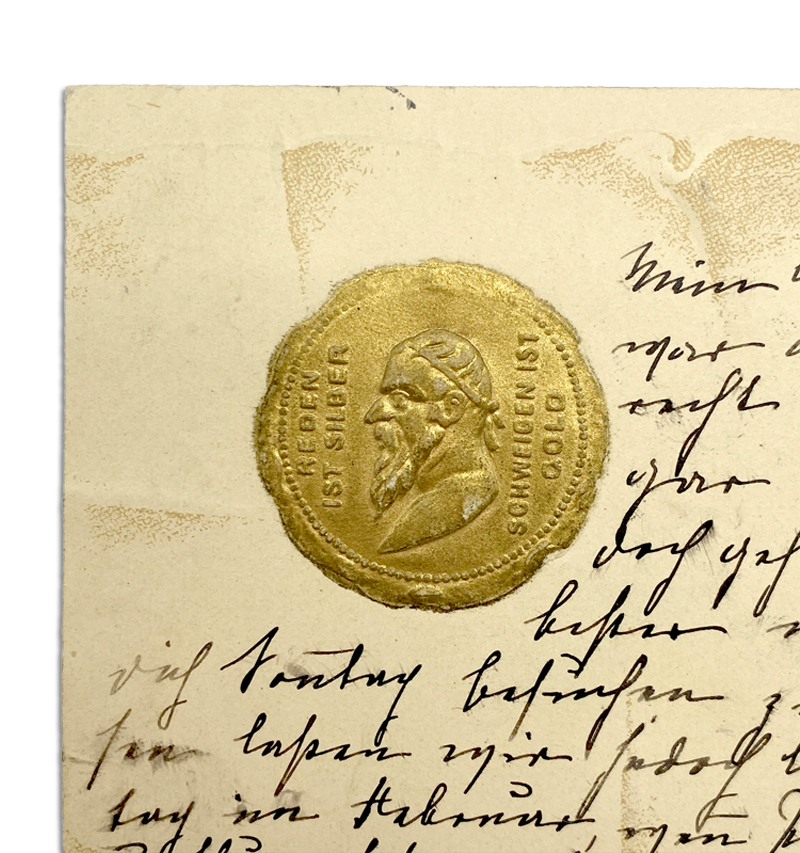 REDEN
IST SILBER
SCHWEIGEN IST
GOLD
Mein
war
recht
gar
doch geh
bester
dich Sontag besuchen
sen laßen wir jedoch
tag im Februar, wen